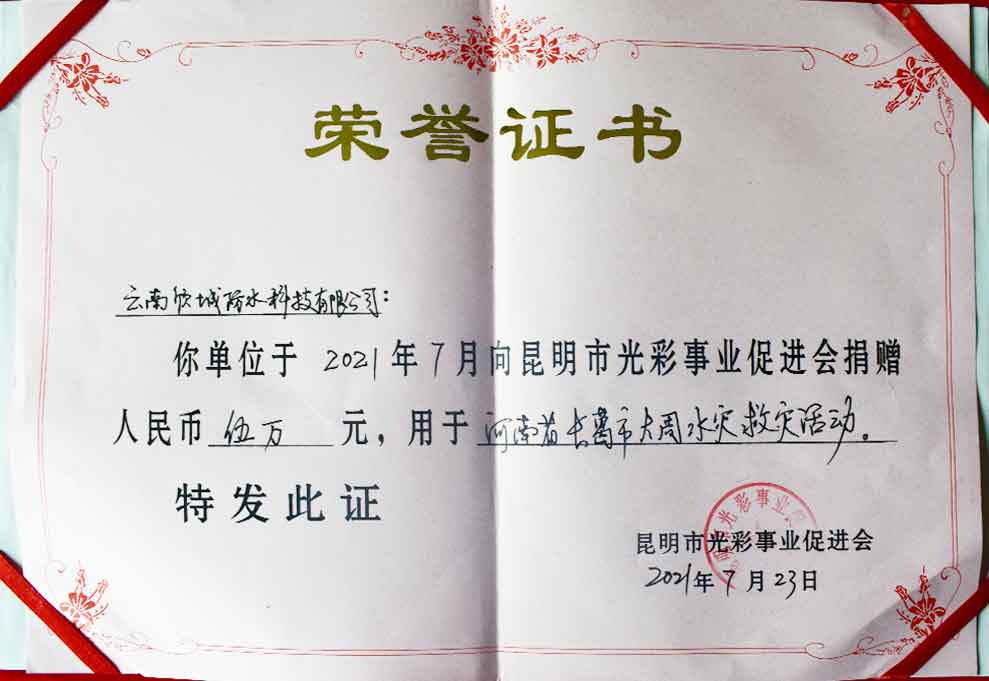 荣誉证书
云南欣城防水科技有限公司：
你单位于 2021年7月向昆明市光彩事业促进会捐赠
人民币 伍万 元，用于 河南省长葛市大周水灾救灾活动。
特发此证
昆明市光彩事业促进会
2021年7月23日